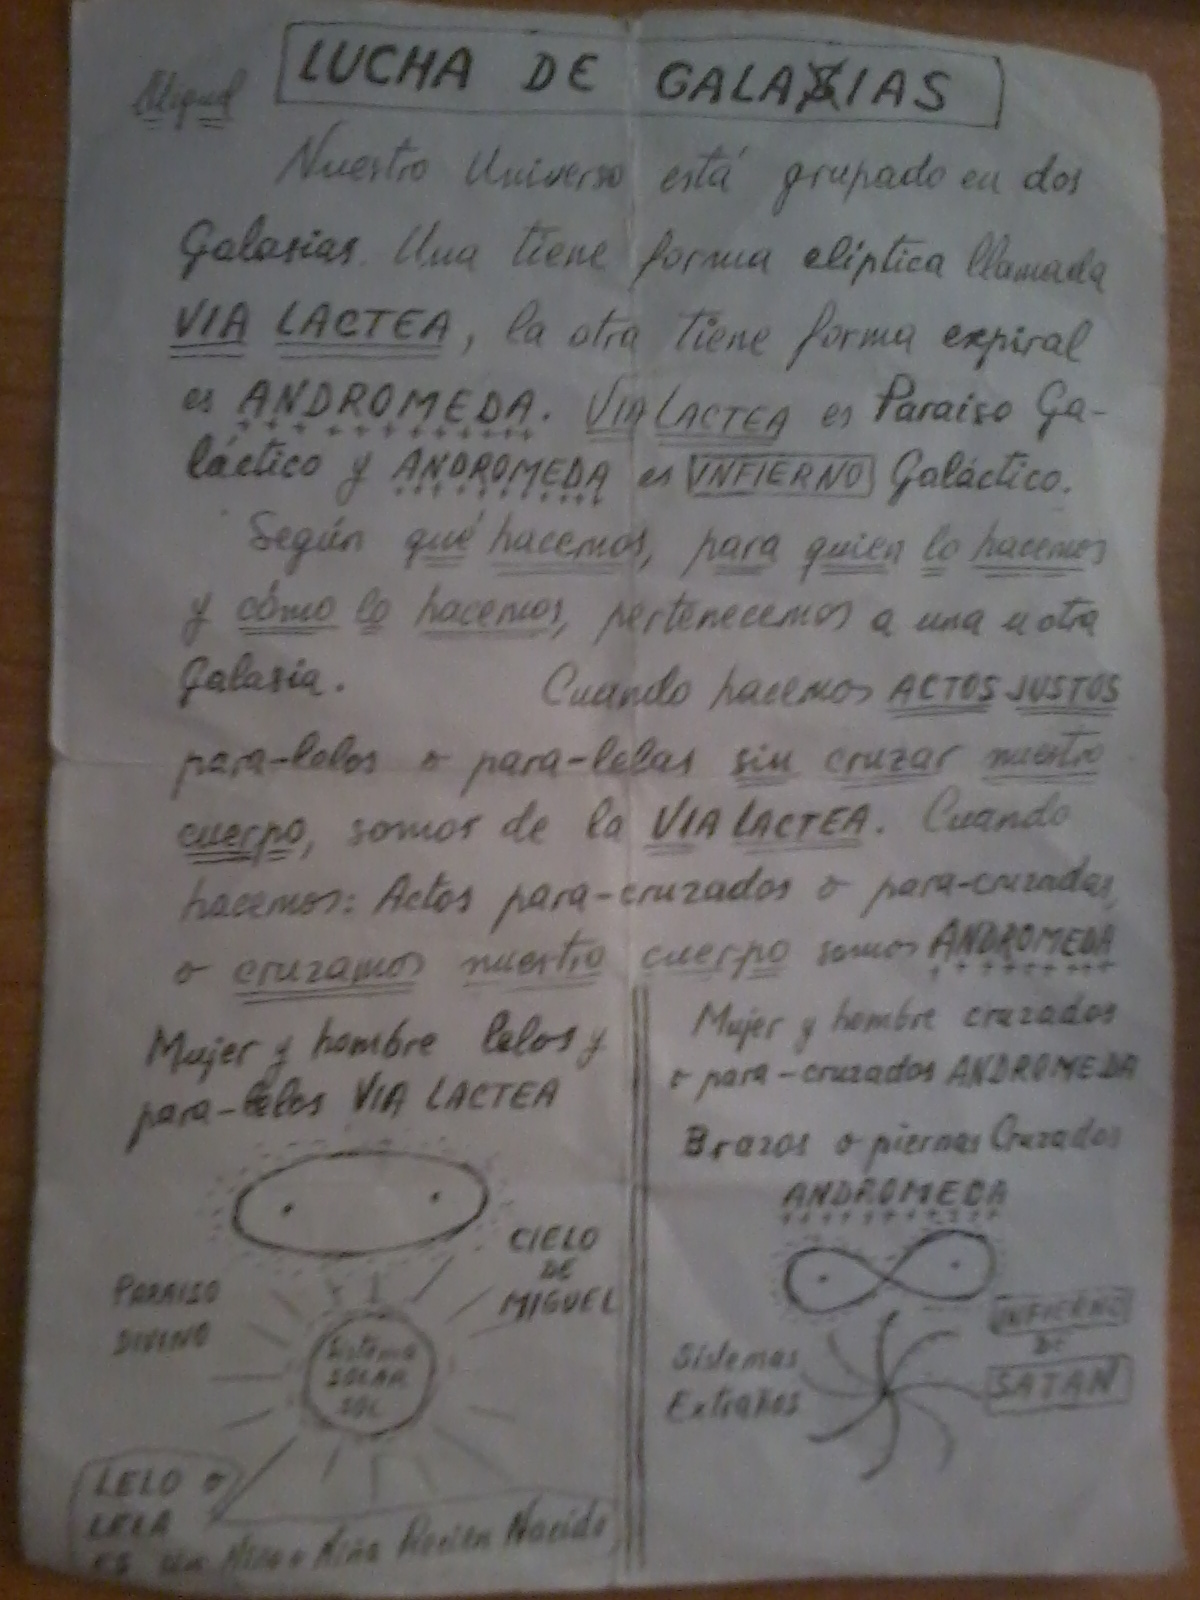 LUCHA DE GALAXIAS
Miguel
Nuestro Universo está grupado en dos
Galasias. Una tiene forma eliptica llamada
VIA LACTEA, la otra tiene forma expiral
es ANDROMEDA. VIA LACTEA es Paraiso Ga-
láctico y ANDROMEDA es INFIERNO Galáctico.
Según qué hacemos, para quien lo hacemos
y cómo lo hacemos, pertenecemos a una u otra
Galasia. Cuando hacemos ACTOS JUSTOS
para-lelos o para-lelas sin cruzar nuestro
cuerpo, somos de la VIA LACTEA. Cuando
hacemos: Actos para-cruzados o para-cruzadas,
o cruzamos nuestro cuerpo somos ANDROMEDA
Mujer y hombre lelos y
para-lelos VIA LACTEA
PARAISO
DIVINO
CIELO
DE
MIGUEL
Sistema
SOLAR
SOL
LELO o
LELA
ES un Niño o Niña Recién Nacido
Mujer y hombre cruzados
o para-cruzados ANDROMEDA
Brazos o piernas Cruzados
ANDROMEDA
Sistemas
Extraños
INFIERNO
DE
SATAN